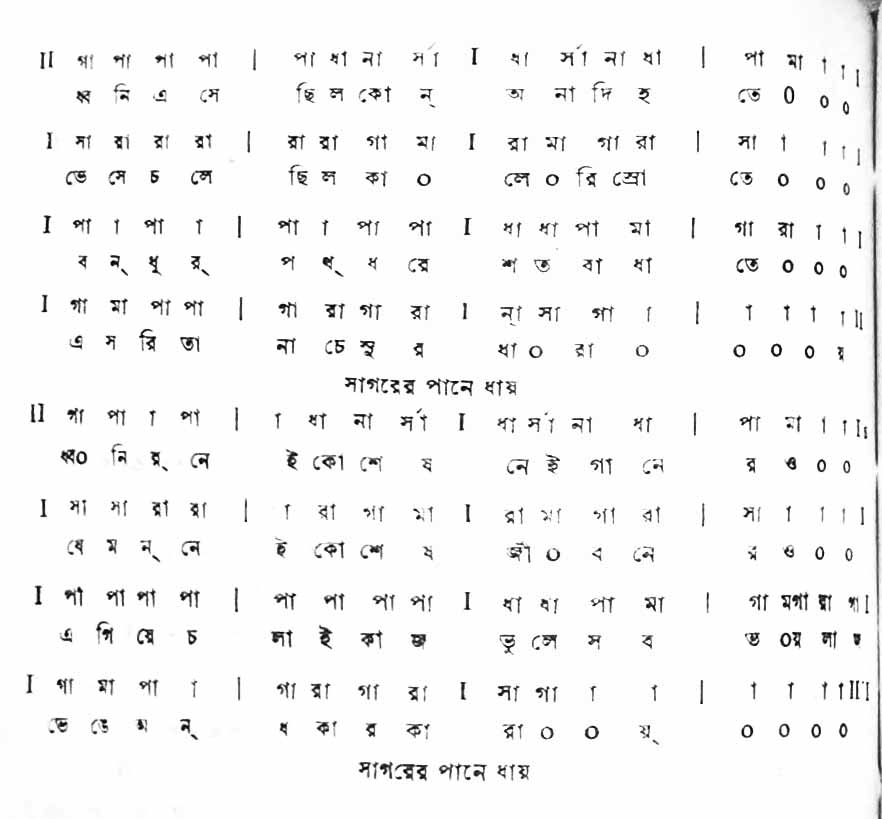 II গা পা পা পা | পা ধা না র্সা I ধা র্সা না ধা | পা মা া া I
ধ্ব নি এ সে ছি ল কো ন্ অ না দি হ তে 0 0 0
I সা রা রা রা | রা রা গা মা I রা মা গা রা | সা া া া I
ভে সে চ লে ছি ল কা 0 লে 0 রি স্রো তে 0 0 0
I পা া পা া | পা া পা পা I ধা ধা পা মা | গা রা া া I
ব ন্ ধু র্ প থ্ ধ রে শ ত বা ধা তে 0 0 0
I গা মা পা পা | গা রা গা রা I ন্ া সা গা া | া া া া II
এ স রি তা না চে সু র ধা 0 রা 0 0 0 0 য়
সাগরের পানে ধায়
II গা পা া পা | া ধা না র্সা I ধা র্সা না ধা | পা মা া া I
ধ্ব0 নি র্ নে ই কো শে ষ নে ই গা নে র ও 0 0
I সা সা রা রা | া রা গা মা I রা মা গা রা | সা া া া I
যে ম ন্ নে ই কো শে ষ জী 0 ব নে র ও 0 0
I পা পা পা পা | পা পা পা পা I ধা ধা পা মা | গা মগা রা গা I
এ গি য়ে চ লা ই কা জ ভু লে স ব ভ 0য় লা
I গা মা পা া | গা রা গা রা I সা গা া া | া া া া II
ভে ঙে ম ন্ ধ কা র কা রা 0 0 য়্ 0 0 0 0
সাগরের পানে ধায়